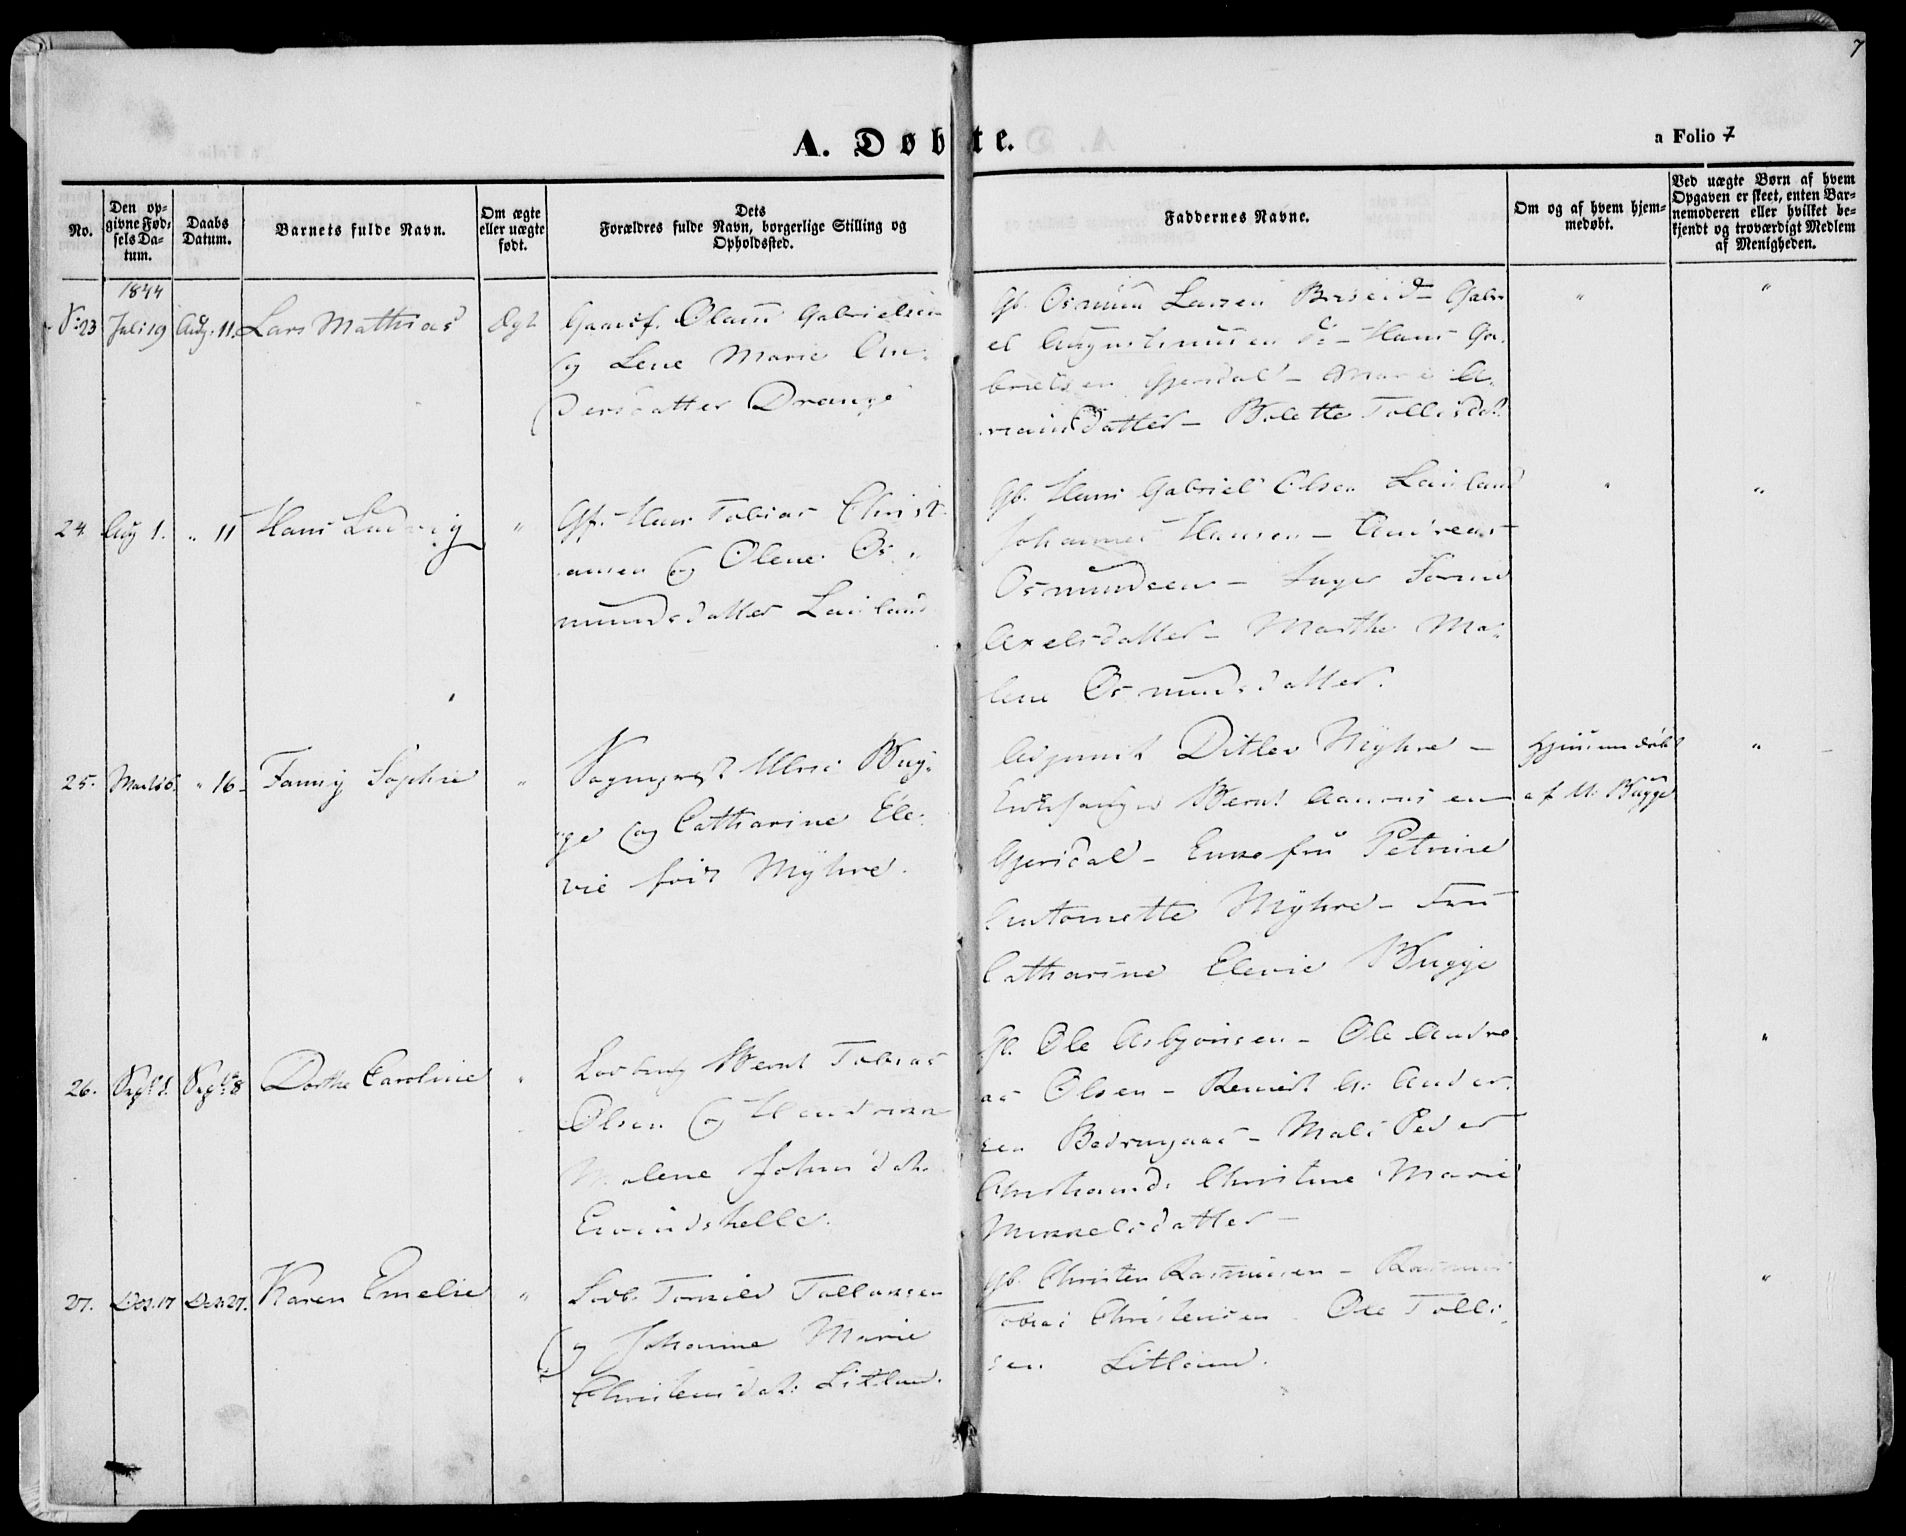 7
A. Døbte.
a Folio 7
No.
Den op-
givne Fød-
sels Da-
tum.
Daabs
Datum.
Barnets fulde Navn.
Om ægte
eller uægte
født.
Dets
Forældres fulde Navn, borgerlige Stilling og
Opholdssted.
Faddernes Navne.
Om og af hvem hjem-
medøbt.
Ved uægte Børn af hvem
Opgaven er skeet, enten Bar-
nemoderen eller hvilket be-
kjendt og troværdigt Medlem
af Menigheden.
1844
23 Juli 19 Aug. 11. Lars Mathias Ægt
Gaardf. Olaus Gabrielsen
og Lene Marie An-
dersdatter Drange
Gb. Osmund Larsen Gabri
el Augustinusen do - Hans Ga-
brielsen Gjersdal - Marie
datter - Bolette Tollisdatt
24. Aug 1. " 11 Hans Ludvig "
Gf. Hans Tobias Christ
ansen og Olene Os-
mundsdatter Lauland
Gb. Hans Gabriel Olsen Lauland
Johannes Hansen - Andreas
Osmundsen - Inger
Axelsdatter - Marthe Ma-
lene Osmundsdatter.
25. Marts 6. " 16 Fanny Sophie "
Sogneprest Ulric Bug-
ge og Catharine Ele-
vie født Myhre.
Ditlev Myhre -
Kirkesanger Bernt Aanensen
Gjersdal - Enkefru Petrine
Antonette Myhre - Fru
Catharine Elevie Bugge
Hjemmedøbt
af U. Bugge
"
26. Sept 1. Septbr 8 Dorthe Caroline "
Bernt Tobias
Olsen og Hendrikke
Malene Johnsdatr
Eivindshelle.
Gb. Ole Asbjørnsen - Ole Andre
as Olsen - Ander-
sen - Mali Peder
Christiansd. Christine Marie
Mikkelsdatter -
"
27. Des. 17 Des. 27. Karen Emelie "
Torkild Tollaksen
og Johanne Marie
Christensdatr. Litland.
Gb. Christen Rasmussen - Rasmus
Tobias Christensen Ole Tolli-
sen Litland.
"